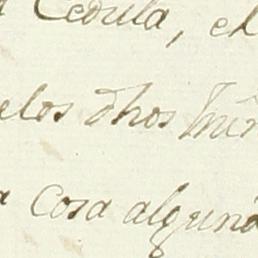 Cedula, el
elos dhos
cosa alguna